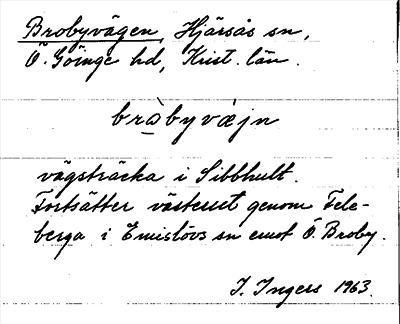 Brobyvägen, Hjärsås sn,
Ö. Göinge hd, Krist. län.
bràbyvæ̀jn
vägsträcka i Sibbhult.
Fortsätter västerut genom Tele-
berga i Emislövs sn emot Ö. Broby.
I. Ingers 1963.